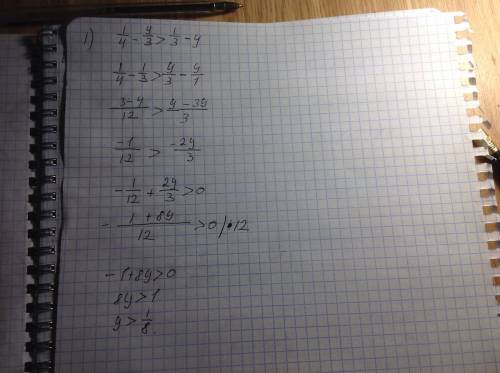 1) 1/4 - y/3 > 1/3 - y
1/4 - 1/3 > y/3 - y/1
3-4/12 > y-3y/3
-1/12 > -2y/3
-1/12 + 2y/3 > 0
- 1+8y/12 > 0 /·12
-1+8y>0
8y>1
y> 1/8